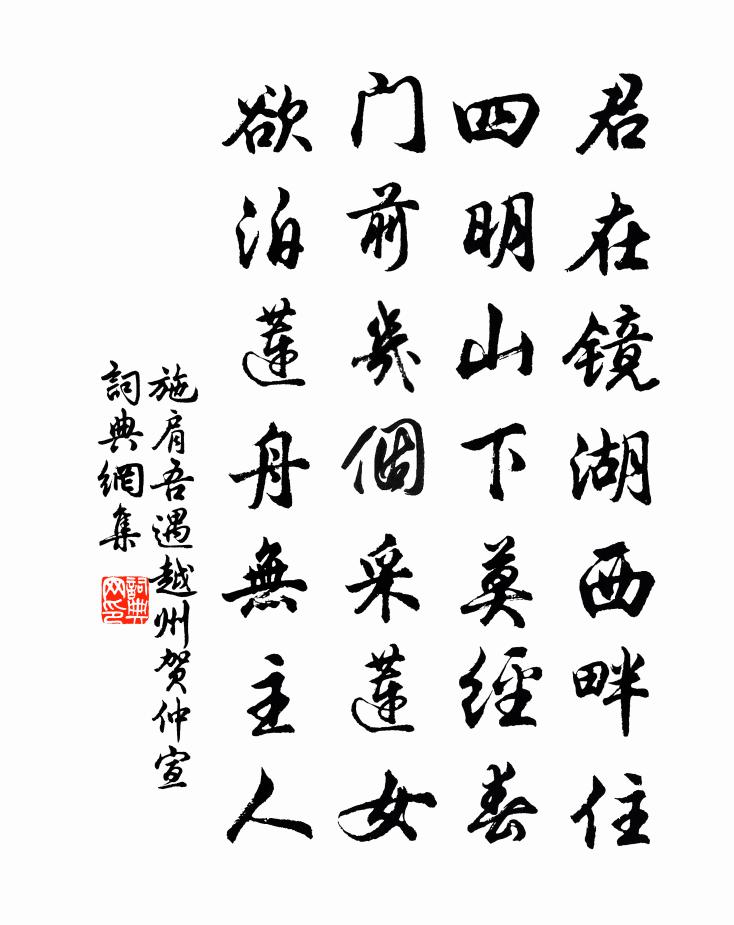 君在镜湖西畔住
四明山下莫經春
门前幾個采蓮女
欲泊蓮舟無主人
施肩吾遇越州贺仲宣
詞典網集
詞典网印